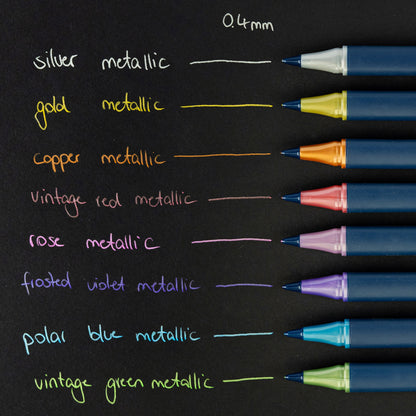 0.4mm
silver metallic
gold metallic
copper metallic
vintage red metallic
rose metallic
frosted violet metallic
polar blue metallic
vintage green metallic